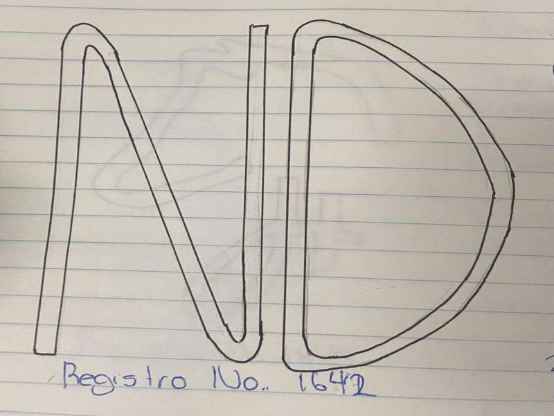 ND
Registro No.. 1642